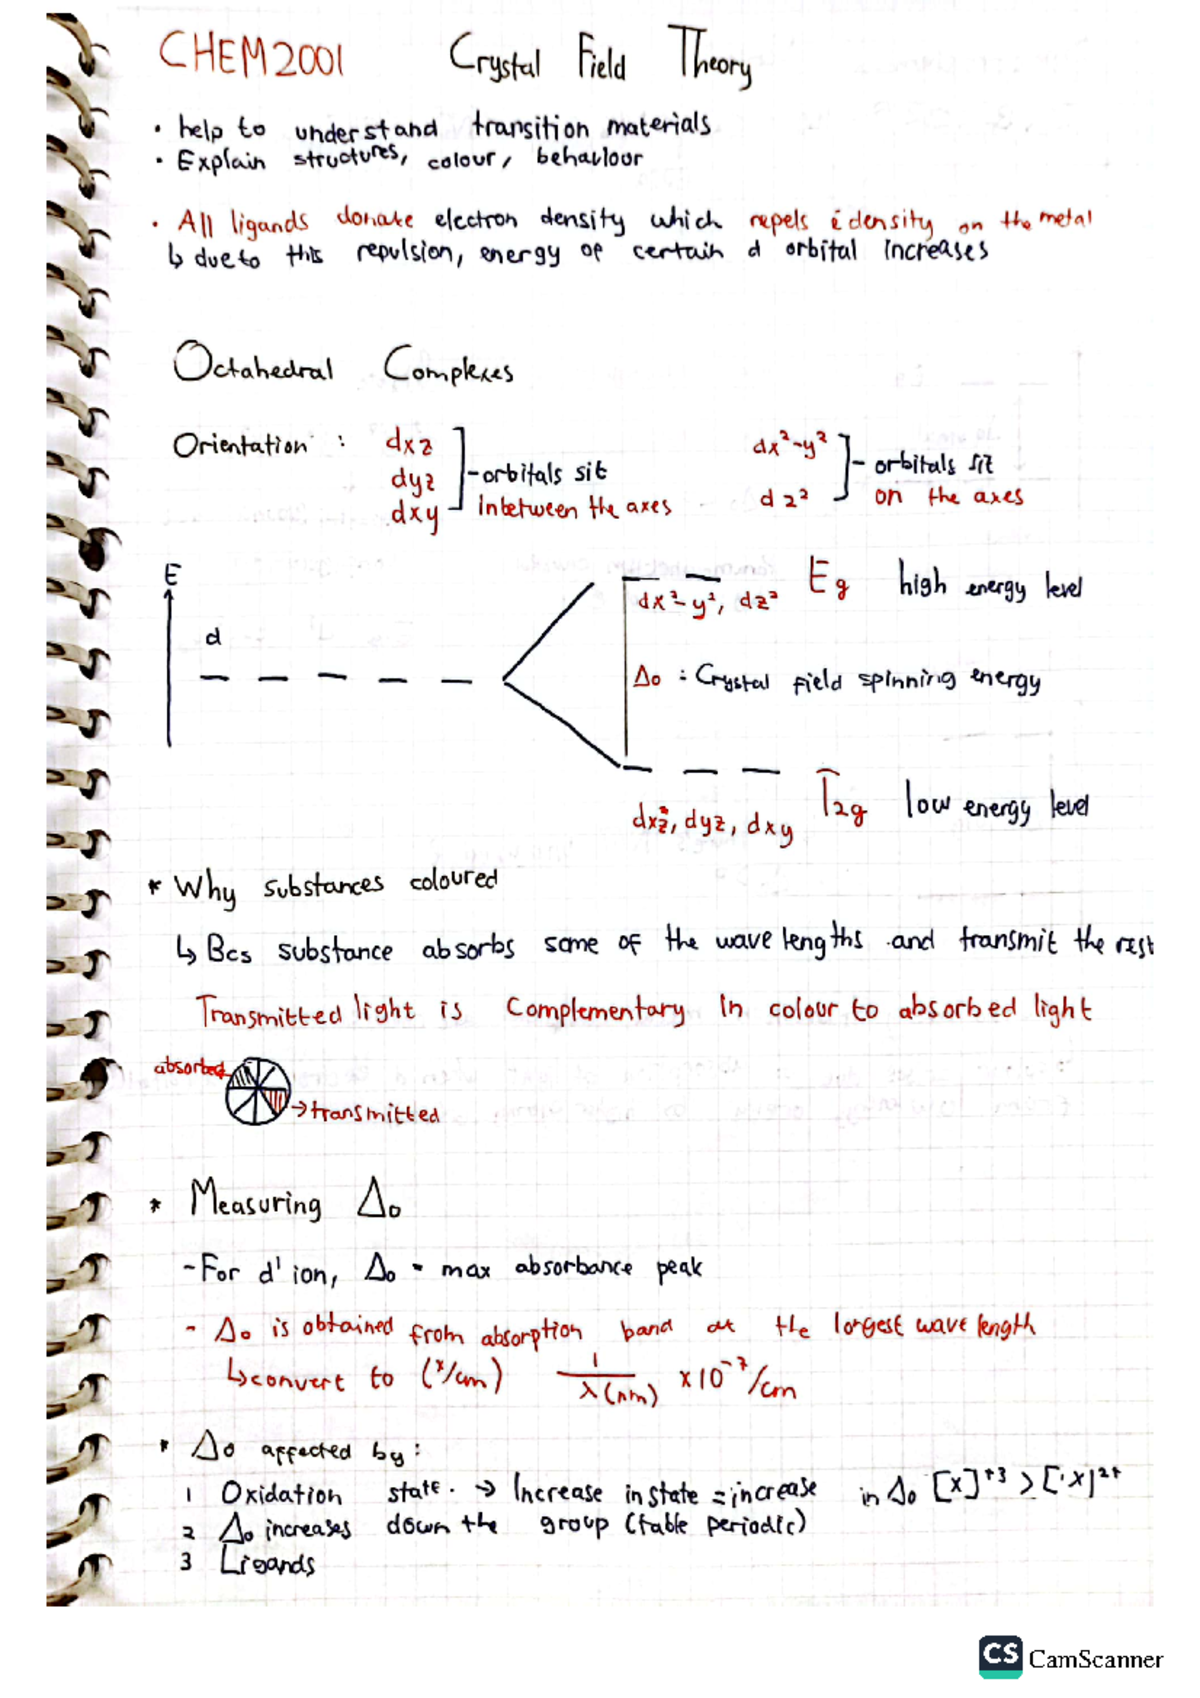 CHEM2001 Crystal Field Theory
• help to understand transition materials
• Explain structures, colour, behaviour
• All ligands donate electron density which repels ē density on the metal
↳ due to this repulsion, energy of certain d orbital increases
Octahedral Complexes
Orientation : dxz
dyz
dxy
- orbitals sit
inbetween the axes
dx²-y²
dz²
- orbitals sit
on the axes
E
d
dx²-y², dz²
Eg high energy level
Δo : Crystal field spinning energy
dxz, dyz, dxy
T2g low energy level
* Why substances coloured
↳ Bcs substance absorbs some of the wave lengths and transmit the rest
Transmitted light is Complementary in colour to absorbed light
absorbed
→ transmitted
* Measuring Δo
- For d¹ ion, Δo = max absorbance peak
- Δo is obtained from absorption band at the longest wave length
↳ convert to (x/cm) 1/λ(nm) x10⁻⁷/cm
* Δo affected by:
1 Oxidation state. → Increase in state = increase in Δo [X]⁺³ > [X]²⁺
2 Δo increases down the group (table periodic)
3 Ligands
CS CamScanner